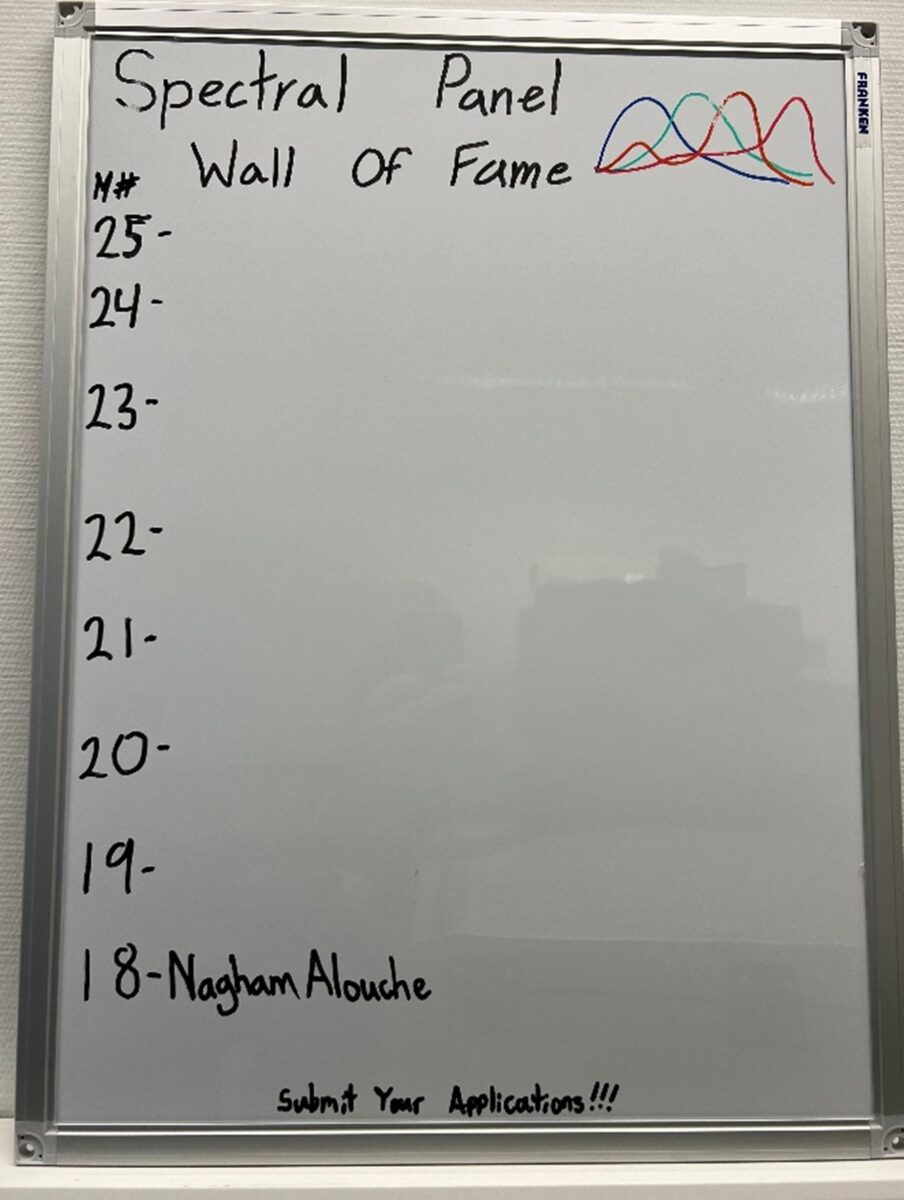 Spectral Panel
Wall Of Fame
FRANKEN
M#
25-
24-
23-
22-
21-
20-
19-
18-Nagham Alouche
Submit Your Applications!!!